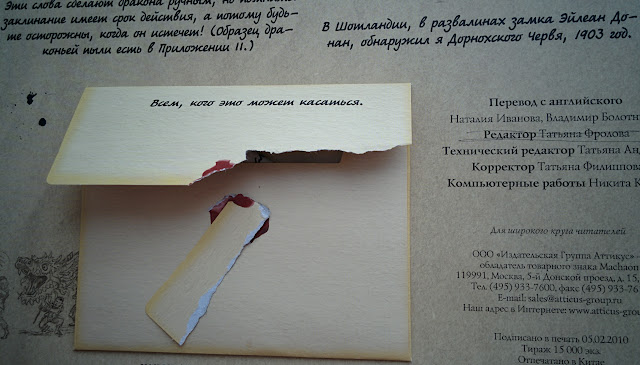 Эти слова сделают дракона ручным, но
заклинание имеет срок действия, а потому будь-
те осторожны, когда он истечет! (Образец дра-
коньей пыли есть в Приложении II.)
В Шотландии, в развалинах замка Эйлеан До-
нан, обнаружил я Дорнохского Червя, 1903 год.
Всем, кого это может касаться.
Перевод с английского
Наталия Иванова, Владимир
Редактор Татьяна Фролова
Технический редактор Татьяна
Корректор Татьяна
Компьютерные работы Никита
Для широкого круга читателей
ООО «Издательская Группа Аттикус» –
обладатель товарного знака Machaon
119991, Москва, 5-й Донской проезд, д. 15,
Тел. (495) 933-7600, факс (495)
E-mail: sales@atticus-group.ru
Наш адрес в Интернете:
Подписано в печать 05.02.2010
Тираж 15 000 экз.
Отпечатано в Китае